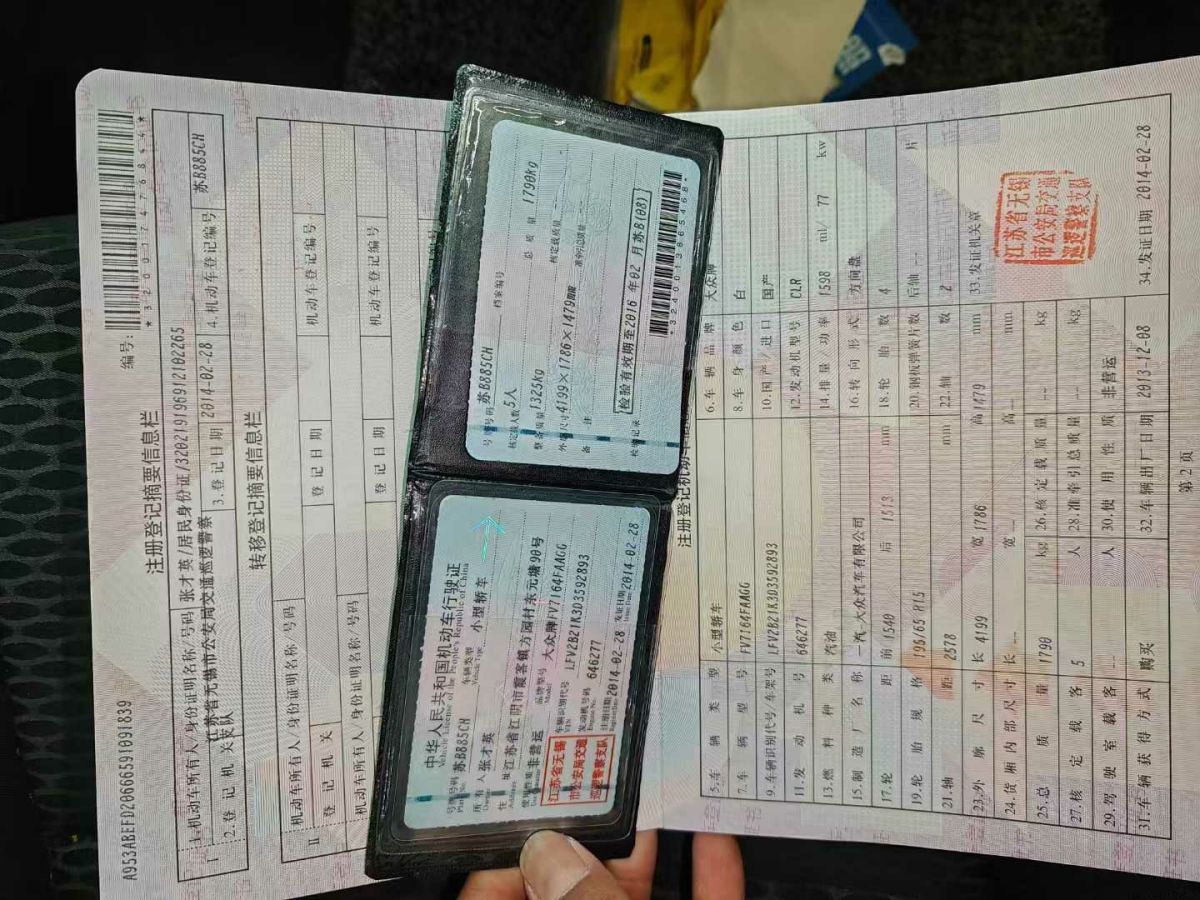 编号:
*320017476844*
A953ABEFD20666591091839
注册登记摘要信息栏
Ⅰ
1.机动车所有人/身份证明名称/号码 张才英/居民身份证/320219196912102265
2.登记机关 江苏省无锡市公安局交通巡逻警察支队 3.登记日期 2014-02-28 4.机动车登记编号 苏B885CH
转移登记摘要信息栏
Ⅱ
机动车所有人/身份证明名称/号码
登记机关 登记日期 机动车登记编号
机动车所有人/身份证明名称/号码
登记日期 机动车登记编号
中华人民共和国机动车行驶证
Vehicle License of the People's Republic of China
号牌号码 苏B885CH 车辆类型 小型轿车
Plate No. Vehicle Type
所有人 张才英
Owner
住址 江苏省江阴市霞客镇方园村东元塘90号
Address
使用性质 非营运 品牌型号 大众牌FV7164FAAGG
Use Character Model
江苏省无锡
市公安局交通
巡逻警察支队
车辆识别代号 LFV2B21K3D3592893
VIN
发动机号码 646277
Engine No.
注册日期 2014-02-28 发证日期 2014-02-28
Register Date Issue Date
号牌号码 苏B885CH 档案编号
核定载人数 5人 总质量 1790kg
整备质量 1325kg 核定载质量
外廓尺寸 4199×1786×1479mm 准牵引总质量
备注
检验有效期至2016年02月苏B(08)
检验记录
*3240013865468*
注册登记机动车信息
5.车辆类型 小型轿车 6.车辆品牌 大众牌
7.车辆型号 FV7164FAAGG 8.车身颜色 白
9.车辆识别代号/车架号 LFV2B21K3D3592893 10.国产/进口 国产
11.发动机号 646277 12.发动机型号 CLR
13.燃料种类 汽油 14.排量/功率 1598 ml/ 77 kw
15.制造厂名称 一汽-大众汽车有限公司 16.转向形式 方向盘
17.轮距 前 1540 后 1513 mm 18.轮胎数 4
19.轮胎规格 195/65 R15 20.钢板弹簧片数 后轴 -- 片
21.轴距 2578 mm 22.轴数 2
23.外廓尺寸 长 4199 宽 1786 高 1479 mm 33.发证机关章
24.货厢内部尺寸 长 -- 宽 -- 高 -- mm
25.总质量 1790 kg 26.核定载质量 -- kg
27.核定载客 5 人 28.准牵引总质量 -- kg
29.驾驶室载客 -- 人 30.使用性质 非营运
31.车辆获得方式 购买 32.车辆出厂日期 2013-12-08 34.发证日期 2014-02-28
江苏省无锡
市公安局交通
巡逻警察支队
第2页